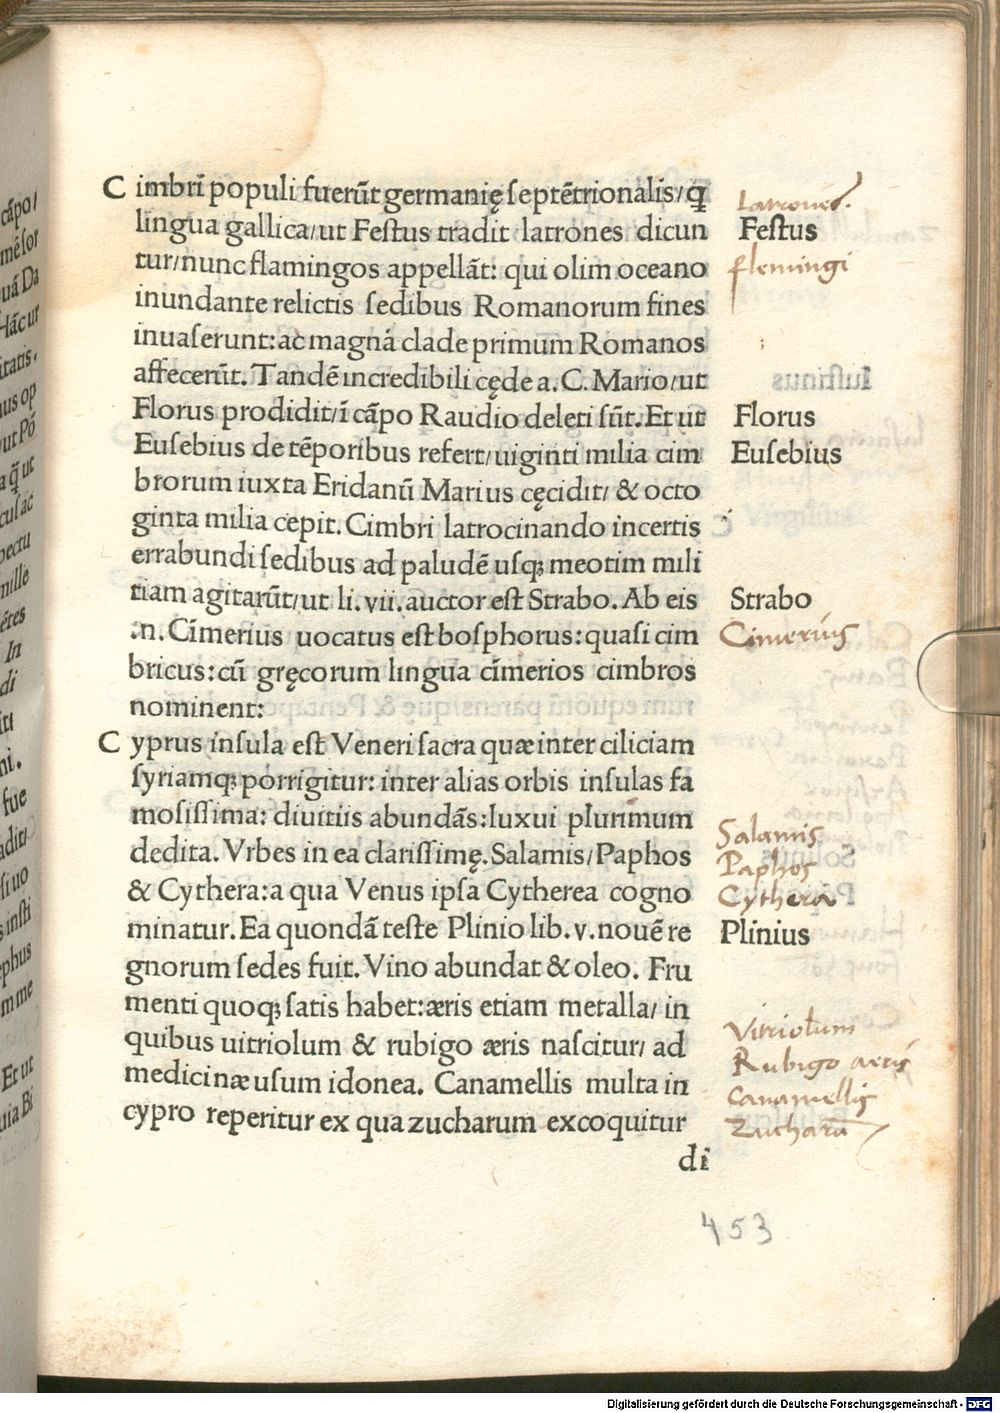 C imbrī populi fuerūt germanię septētrionalis/ q̄
lingua gallica/ut Festus tradit latrones dicun
tur/nunc flamingos appellāt: qui olim oceano
inundante relictis sedibus Romanorum fines
inuaserunt: ac magnā clade primum Romanos
affecerūt. Tandē incredibili cęde a. C. Mario/ut
Florus prodidit/ī cāpo Raudio deleti sūt. Et ut
Eusebius de tēporibus refert/uiginti milia cim
brorum iuxta Eridanū Marius cęcidit/ & octo
ginta milia cepit. Cimbri latrocinando incertis
errabundi sedibus ad paludē usq; meotim mili
tiam agitarūt/ut li. vii. auctor est Strabo. Ab eis
.n. Cīmerius uocatus est bosphorus: quasi cim
bricus: cū gręcorum lingua cīmerios cimbros
nominent:
C yprus insula est Veneri sacra quæ inter ciliciam
syriamq; porrigitur: inter alias orbis insulas fa
mosissima: diuitiis abundās: luxui plurimum
dedita. Vrbes in ea clarissimę. Salamis/Paphos
& Cythera: a qua Venus ipsa Cytherea cogno
minatur. Ea quondā teste Plinio lib. v. nouē re
gnorum sedes fuit. Vino abundat & oleo. Fru
menti quoq; satis habet: æris etiam metalla/ in
quibus uitriolum & rubigo æris nascitur/ ad
medicinæ usum idonea. Canamellis multa in
cypro reperitur ex qua zucharum excoquitur
di
latrones.
Festus
flemingi
Florus
Eusebius
Strabo
Cimerius
Salamis
Paphos
Cythera
Plinius
Vitriolum
Rubigo aeris
Canamellis
Zucharū
453
Digitalisierung gefördert durch die Deutsche Forschungsgemeinschaft - DFG